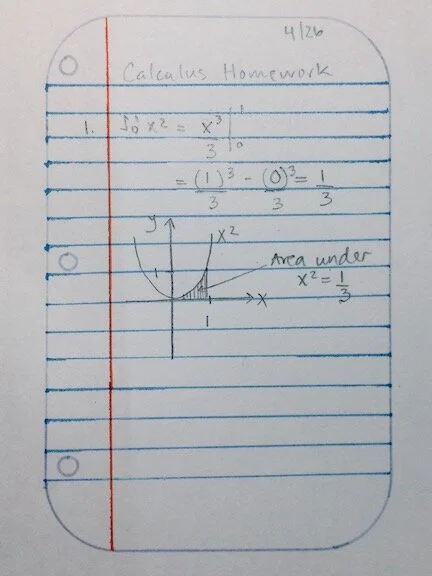 4/26
Calculus Homework
1. ∫₀¹ x² = x³/3 |₀¹
= (1)³/3 - (0)³/3 = 1/3
y
x²
Area under
x² = 1/3
1
x
1